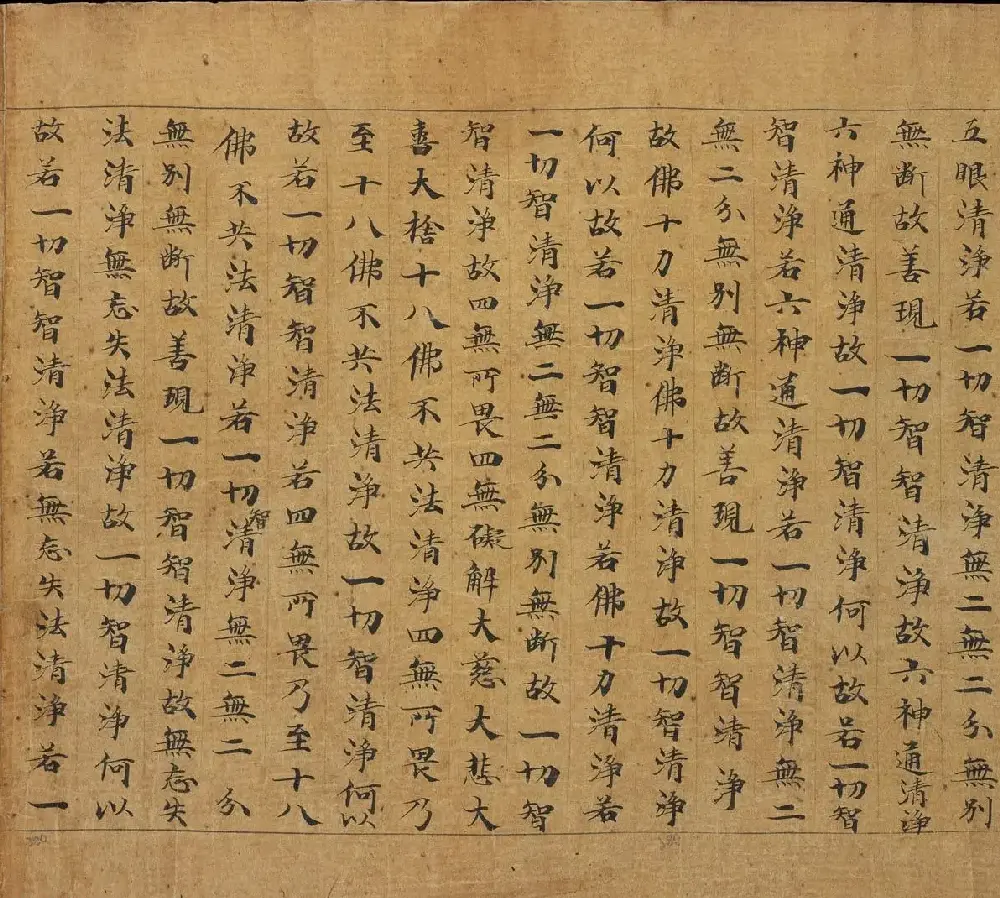 五眼清淨若一切智清淨無二無二分無別
無斷故善現一切智智清淨故六神通清淨
六神通清淨故一切智清淨何以故若一切智
智清淨若六神通清淨若一切智清淨無二
無二分無別無斷故善現一切智智清淨
故佛十力清淨佛十力清淨故一切智清淨
何以故若一切智智清淨若佛十力清淨若
一切智清淨無二無二分無別無斷故一切智
智清淨故四無所畏四無礙解大慈大悲大
喜大捨十八佛不共法清淨四無所畏乃
至十八佛不共法清淨故一切智清淨何以
故若一切智智清淨若四無所畏乃至十八
佛不共法清淨若一切智清淨無二無二分
無別無斷故善現一切智智清淨故無忘失
法清淨無忘失法清淨故一切智清淨何以
故若一切智智清淨若無忘失法清淨若一